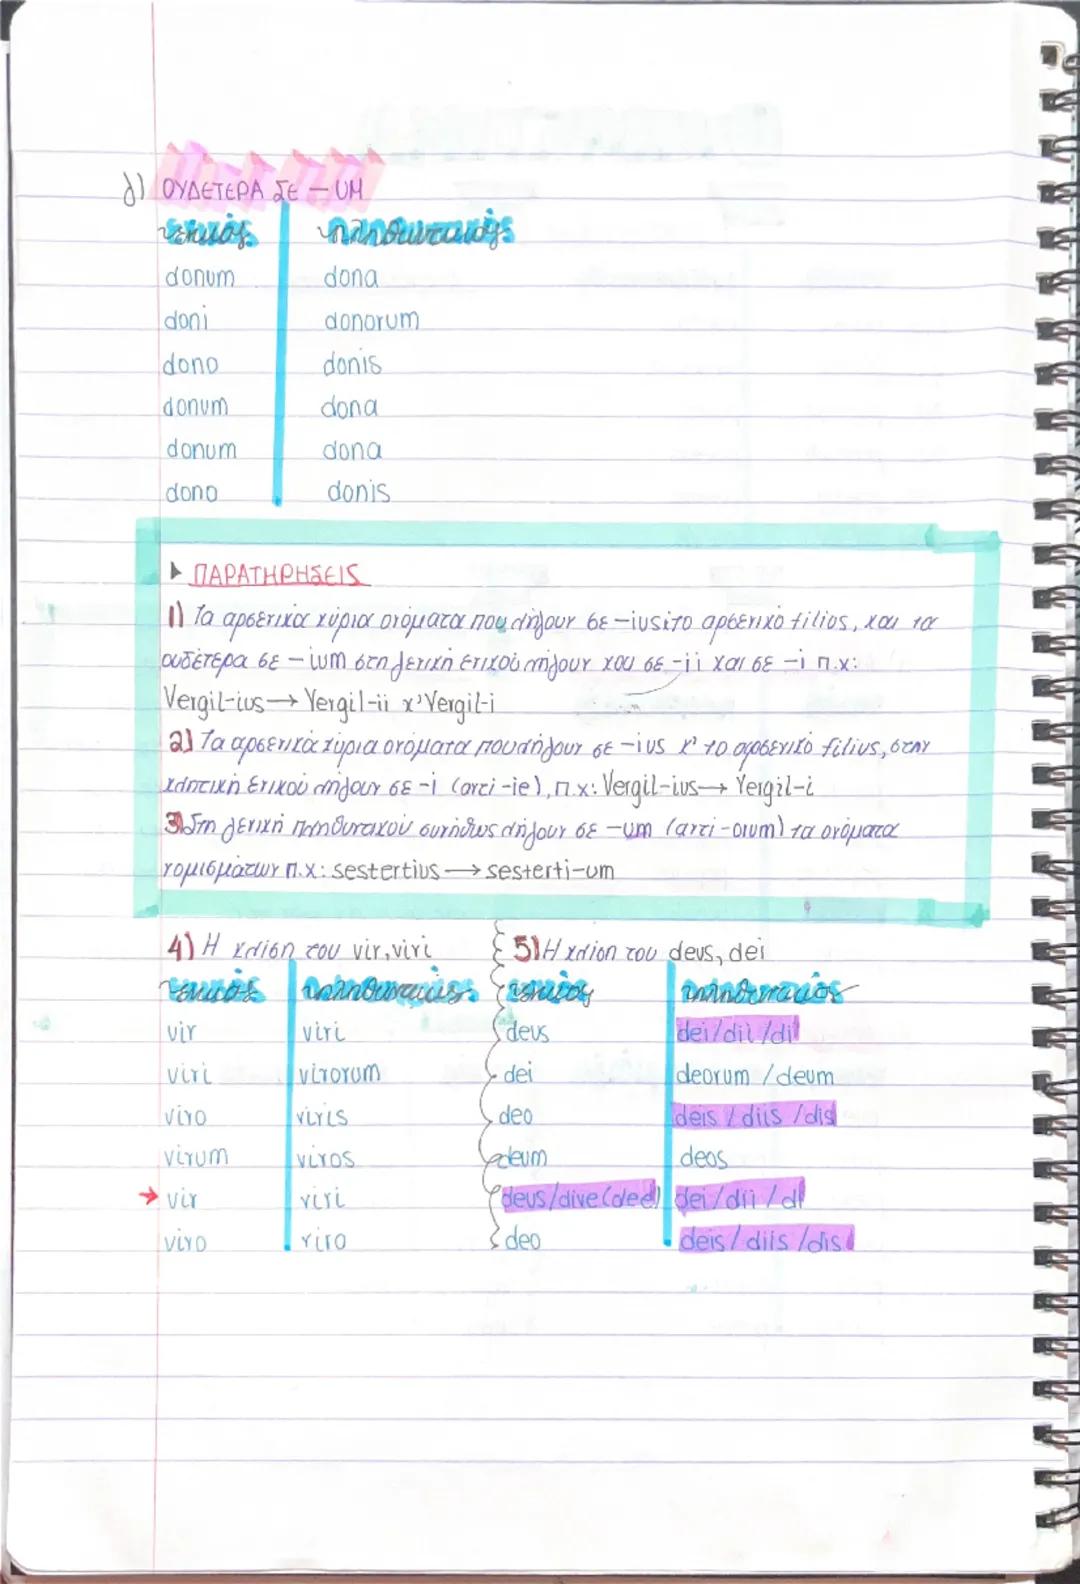 δ) ΟΥΔΕΤΕΡΑ ΣΕ – UM
ενικός πληθυντικός
donum dona
doni donorum
dono donis
donum dona
donum dona
dono donis
ΠΑΡΑΤΗΡΗΣΕΙΣ
1) Τα αρσενικά κύρια ονόματα που λήγουν σε -ius, το αρσενικό filius, και τα
ουδέτερα σε – ium στη γενική ενικού λήγουν και σε -ii και σε -i π.χ:
Vergil-ius → Vergil-ii κ' Vergil-i
2) Τα αρσενικά κύρια ονόματα που λήγουν σε -ius κ' το αρσενικό filius, στην
κλητική ενικού λήγουν σε -i (αντί -ie), π.χ: Vergil-ius → Vergil-i
3) Στη γενική πληθυντικού συνήθως λήγουν σε -um (αντί -orum) τα ονόματα
νομισμάτων π.χ: sestertius → sesterti-um
4) Η κλίση του vir, viri
ενικός πληθυντικός
vir viri
viri virorum
viro viris
virum viros
→ vir viri
viro viro
5) Η κλίση του deus, dei
ενικός πληθυντικός
deus dei/dii/di
dei deorum/deum
deo deis/diis/dis
deum deos
deus/dive(dee) dei/dii/di
deo deis/diis/dis